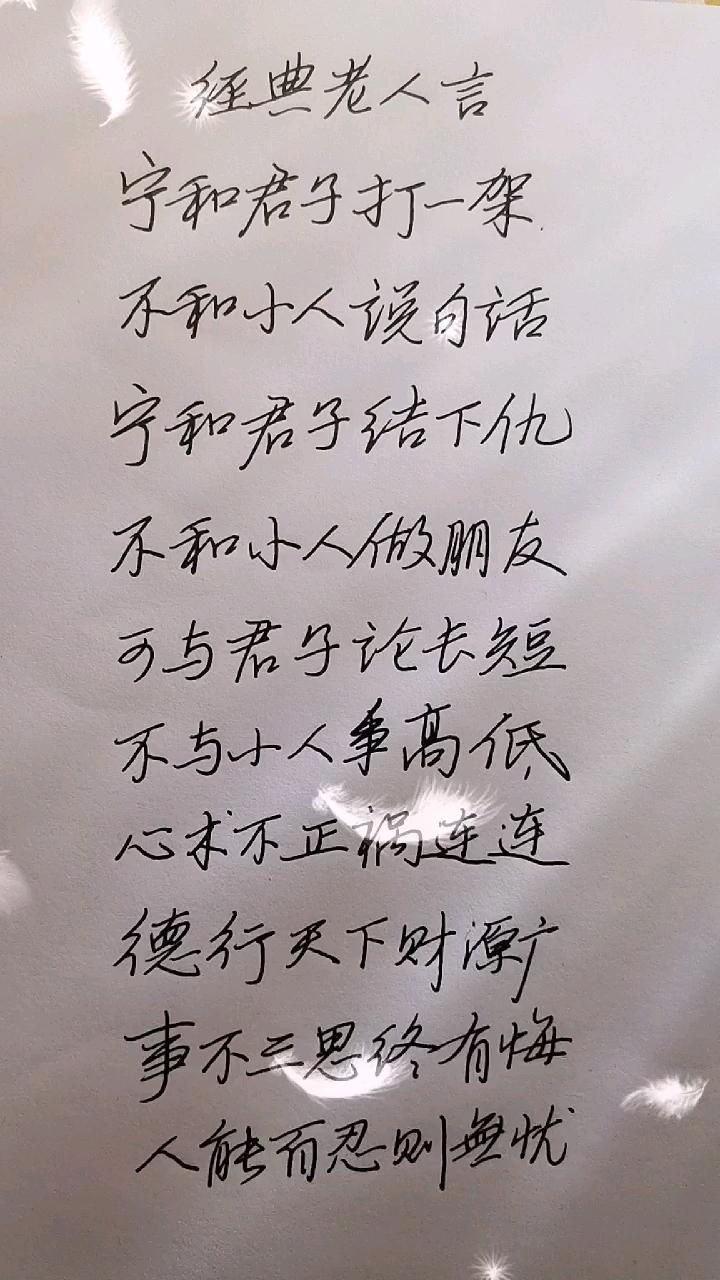 經典老人言
宁和君子打一架
不和小人説句话
宁和君子结下仇
不和小人做朋友
可与君子论长短
不与小人争高低
心术不正祸连连
德行天下财源广
事不三思终有悔
人能百忍则無忧